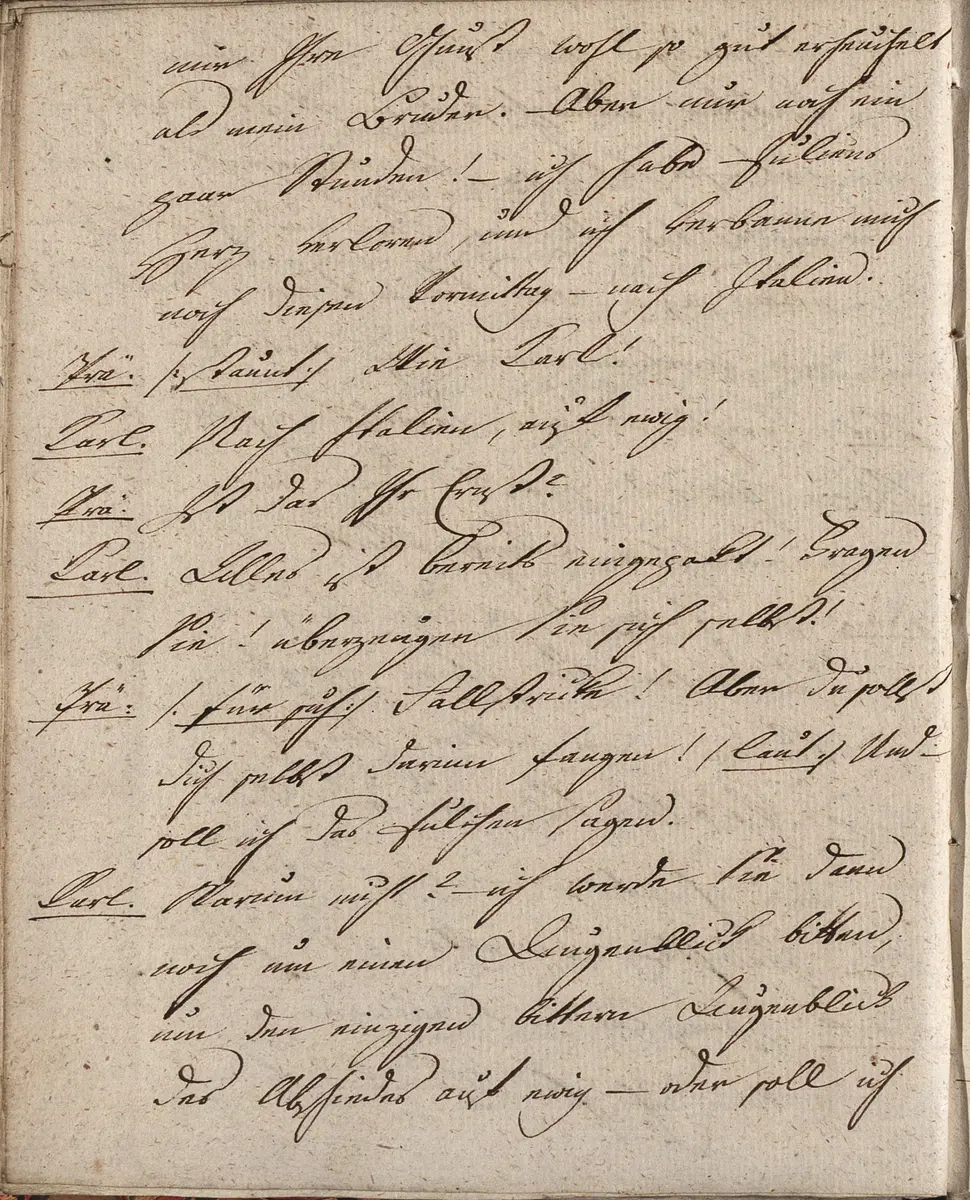 mir Ihre Gunst wohl so gut erheuchelt
als mein Bruder. – Aber nur noch ein
paar Stunden! – ich habe Juliens
Herz verloren, und ich verbanne mich
noch diesen Vormittag – nach Italien.
Prä. /: staunt :/ Wie Karl!
Karl. Nach Italien, auf ewig!
Prä. Ist das Ihr Ernst?
Karl. Alles ist bereits eingepakt! Fragen
Sie! überzeugen Sie sich selbst!
Prä: /: für sich :/ Fallstricke! Aber du sollst
dich selbst darinn fangen! /: laut :/ Und –
soll ich das Julchen sagen.
Karl. Warum nicht? – ich werde Sie dann
noch um einen Augenblick bitten,
um den einzigen bittern Augenblick
des Abschiedes auf ewig – oder soll ich